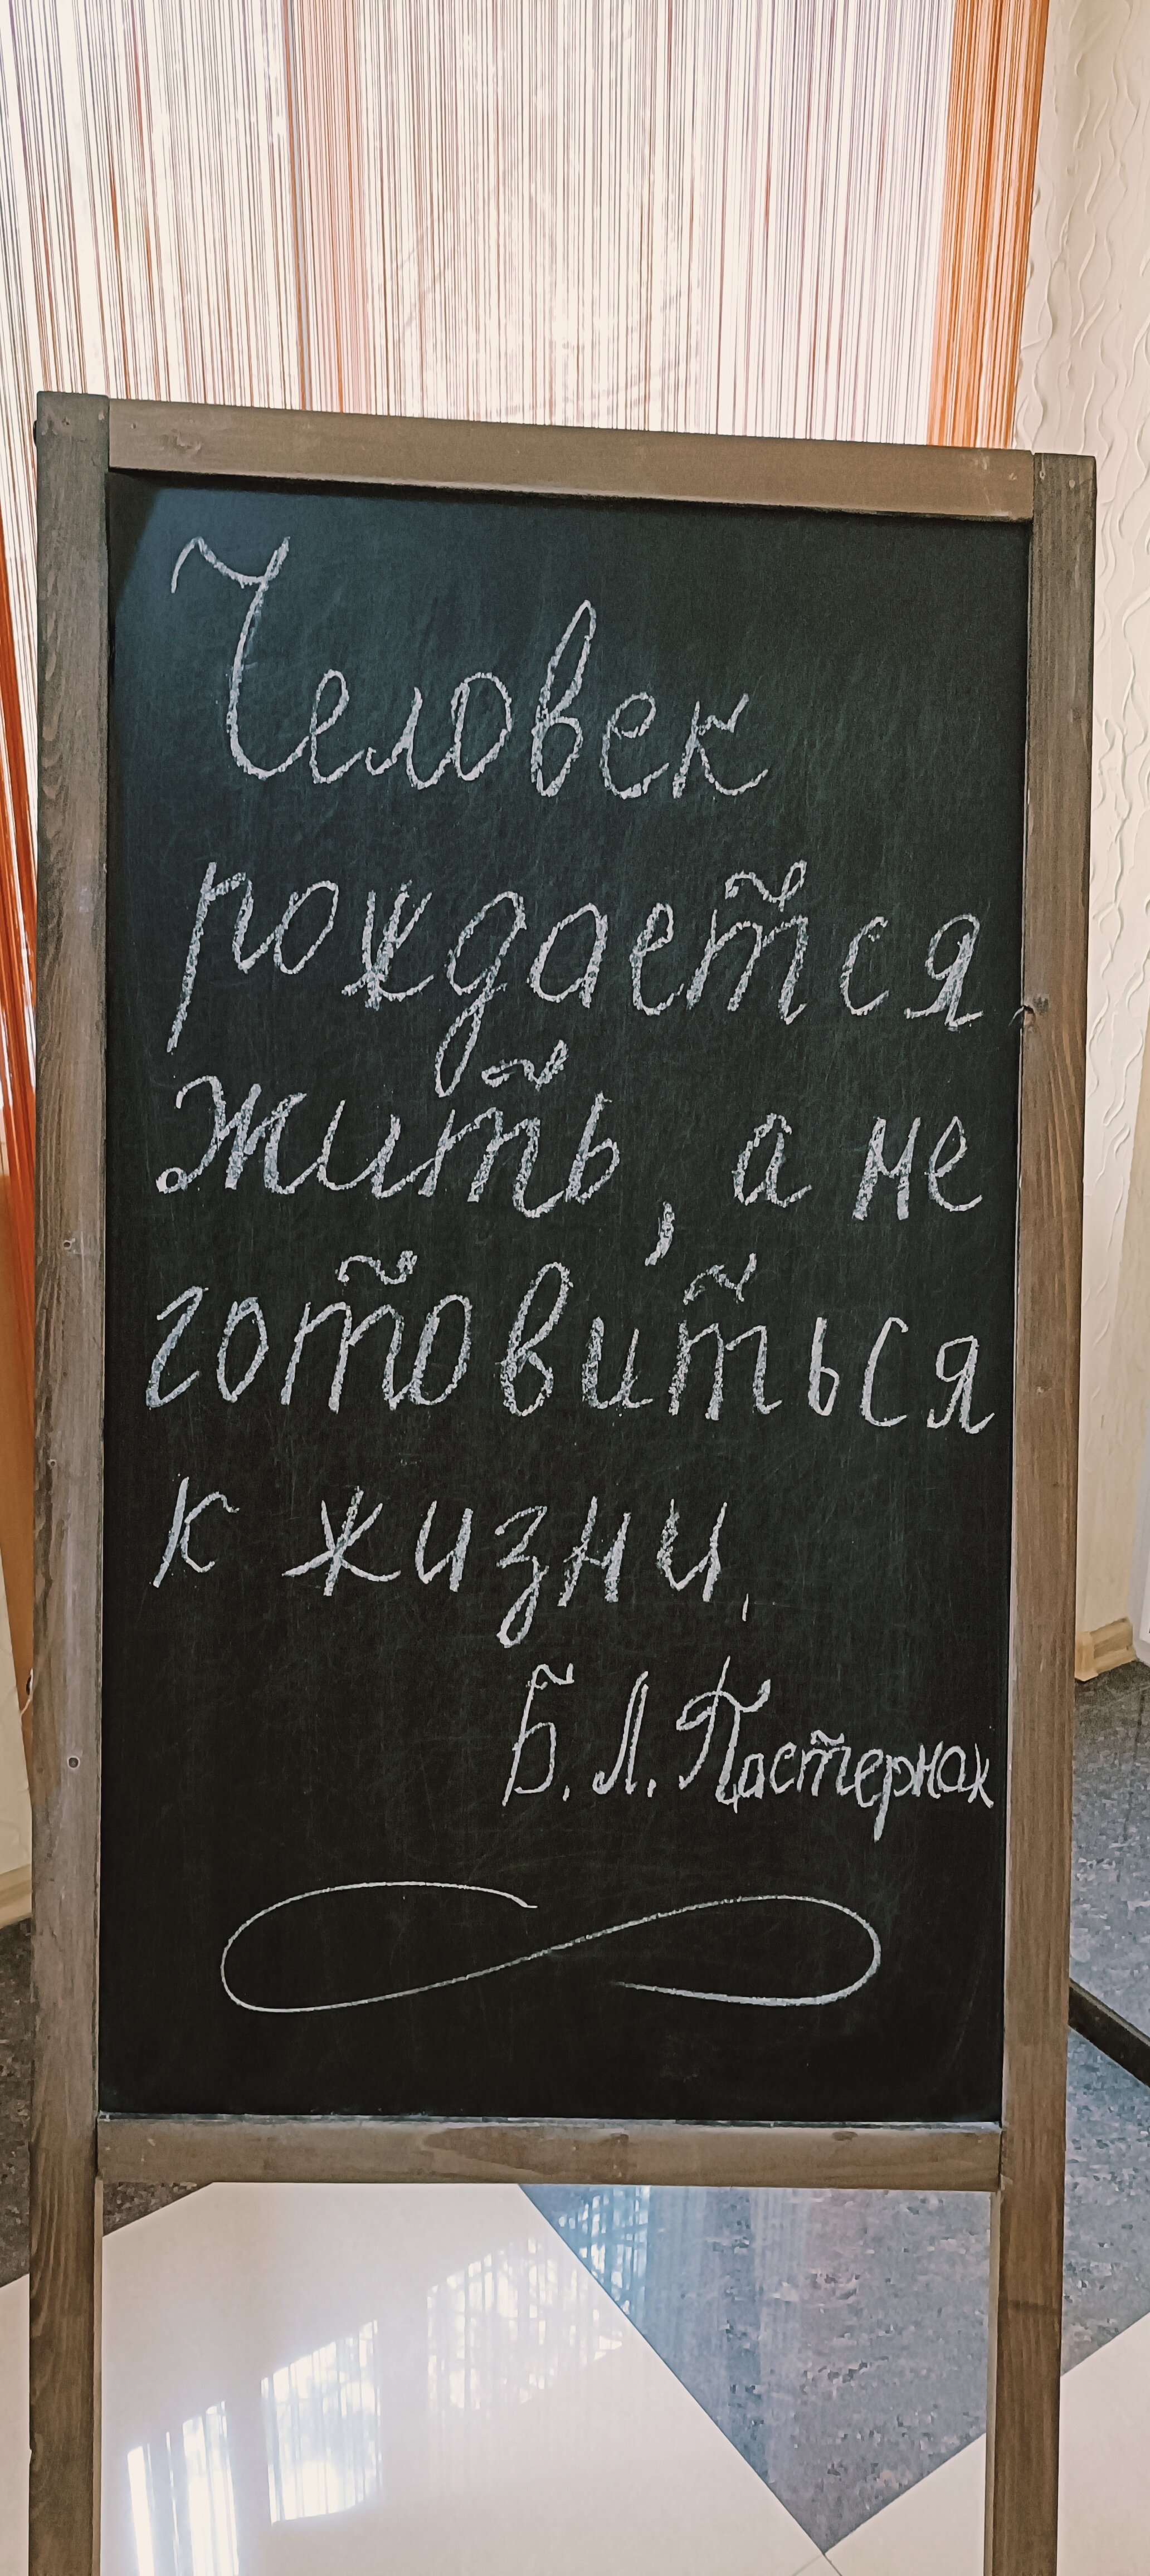 Человек
рождается
жить, а не
готовиться
к жизни.
Б. Л. Пастернак